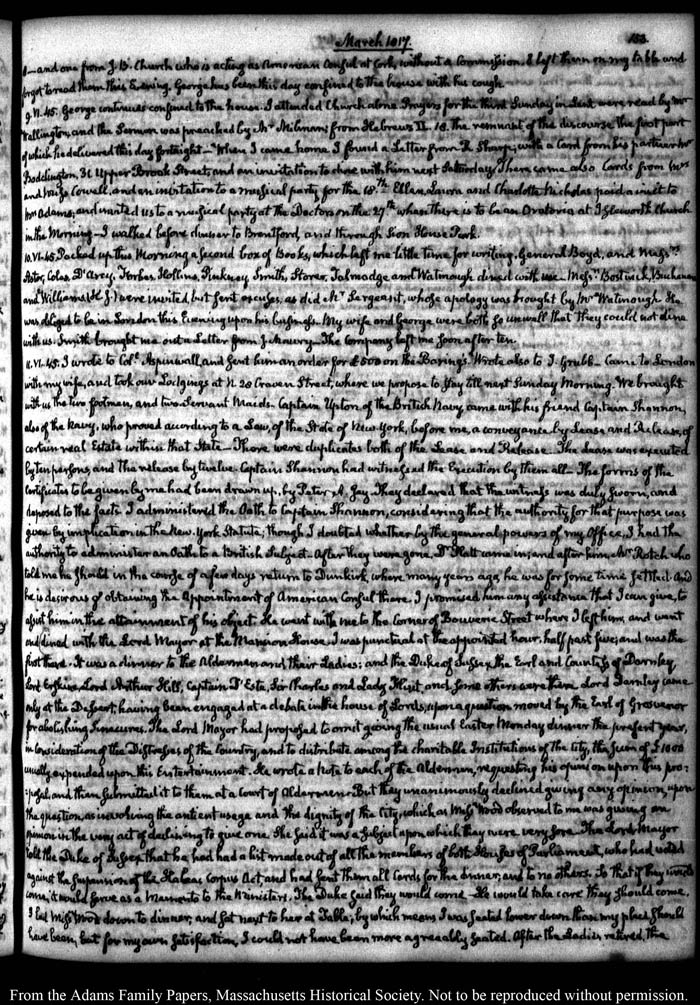 March 1817. 153.
8— and one from J. B. Church who is acting as American Consul at Cork, without a Commission. I left them on my table and
forgot to read them this Evening. George has been this day confined to the house with his cough.
9. VI.45. George continues confined to the house. I attended Church alone. Prayers for the third Sunday in Lent were read by Mr
Wallington, and the Sermon was preached by Mr Milman; from Hebrews II. 18. the remnant of the discourse the first part
of which he delivered this day fortnight— When I came home I found a Letter from R. Sharp; with a Card from his partner Mr
Boddington, 31 Upper Brook Street, and an invitation to dine with him next Saturday. There came also Cards from Mrs
and Miss Cowell, and an invitation to a musical party for the 18th. Ellen, Laura and Charlotte Nicholas paid a visit to
Mrs Adams; and invited us to a musical party at the Doctors on the 27th when there is to be an Oratorio at Isleworth Church
in the Morning— I walked before dinner to Brentford, and through Sion House Park.
10. VI.45. Packed up this Morning a second box of Books, which left me little time for writing. General Boyd, and Messrs
Astor, Coles, D'Arcy, Forbes, Hollins, Pinkney, Smith, Storer, Talmadge and Watmough dined with us. Messrs Bostwick, Buchanan
and Williams (H. J.) were invited but sent excuses, as did Mr Sergeant, whose apology was brought by Mr Watmough. He
was obliged to be in London this Evening upon his business. My wife and George were both so unwell that they could not dine
with us. Smith brought me out a Letter from J. Maury. The company left me soon after ten.
11. VI.45. I wrote to Coll. Aspinwall and sent him an order for £500 on the Barings. Wrote also to J. Grubb. Came to London
with my wife, and took our Lodgings at N. 28 Craven Street, where we propose to stay till next Sunday Morning. We brought
with us the two footmen, and two Servant Maids. Captain Upton of the British Navy came with his friend Captain Shannon,
also of the Navy, who proved according to a Law, of the State of New York, before me, a conveyance by Lease and Release, of
certain real Estate within that State— There were duplicates both of the Lease and Release. The Lease was executed
by ten persons, and the release by twelve. Captain Shannon had witnessed the Execution by them all— The forms of the
Certificates to be given by me had been drawn up, by Peter A. Jay. They declared that the witness was duly sworn, and
deposed to the facts. I administered the Oath to Captain Shannon, considering that the authority for that purpose was
given by implication in the New York Statute; though I doubted whether by the general powers of my Office, I had the
authority to administer an Oath to a British Subject. After they were gone, Dr came in; and after him, Mr Rotch who
told me he should in the course of a few days return to Dunkirk, where many years ago, he was for some time settled. And
he is desirous of obtaining the Appointment of American Consul there. I promised him any assistance that I can give, to
assist him in the attainment of his object. He went with me to the Corner of Bouverie Street where I left him, and went
and dined with the Lord Mayor at the Mansion House. I was punctual at the appointed hour, half past five; and was the
first there. It was a dinner to the Aldermen and their Ladies; and the Duke of Sussex, the Earl and Countess of Darnley
Lord Erskine, Lord Arthur Hill, Captain D'Este, Sir Charles and Lady and some others were there. Lord Darnley came
only at the Dessert, having been engaged at a debate in the house of Lords, upon a question moved by the Earl of Grosvenor
for abolishing Sinecures. The Lord Mayor had proposed to omit giving the usual Easter Monday dinner the present year,
in consideration of the Distresses of the Country, and to distribute among the charitable Institutions of the City, the sum of £1000
usually expended upon this Entertainment. He wrote a Note to each of the Aldermen, requesting his opinion upon this pro-
posal, and then submitted it to them at a Court of Aldermen. But they unanimously declined giving any opinion upon
the question, as involving the antient usage and the dignity of the City, which as Miss Wood observed to me was giving an
opinion in the very act of declining to give one. She said it was a subject upon which they were very sore. The Lord Mayor
told the Duke of Sussex that he had had a list made out of all the members of both Houses of Parliament, who had voted
against the suspension of the Habeas Corpus Act, and had sent them all Cards for the dinner, and to no others. So that if they would
come, it would serve as a Memento to the Ministers. The Duke said they would come— He would take care they should come.
I led Miss Wood down to dinner, and sat next to her at Table; by which means I was seated lower down than my place should
have been, but for my own satisfaction, I could not have been more agreeably seated. After the Ladies retired, the
From the Adams Family Papers, Massachusetts Historical Society. Not to be reproduced without permission